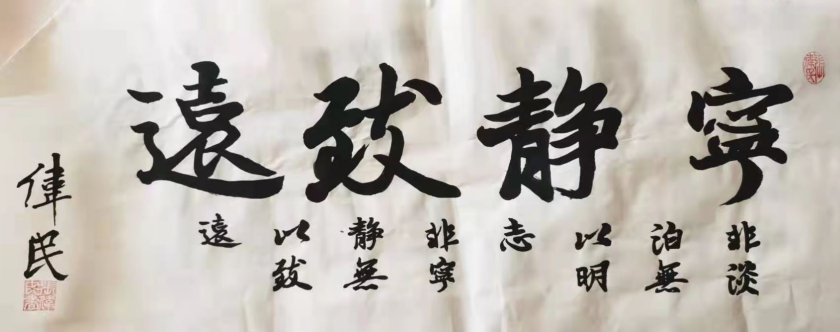 寧静致遠
非淡
泊無
以明
志
非寧
静無
以致
遠
偉民